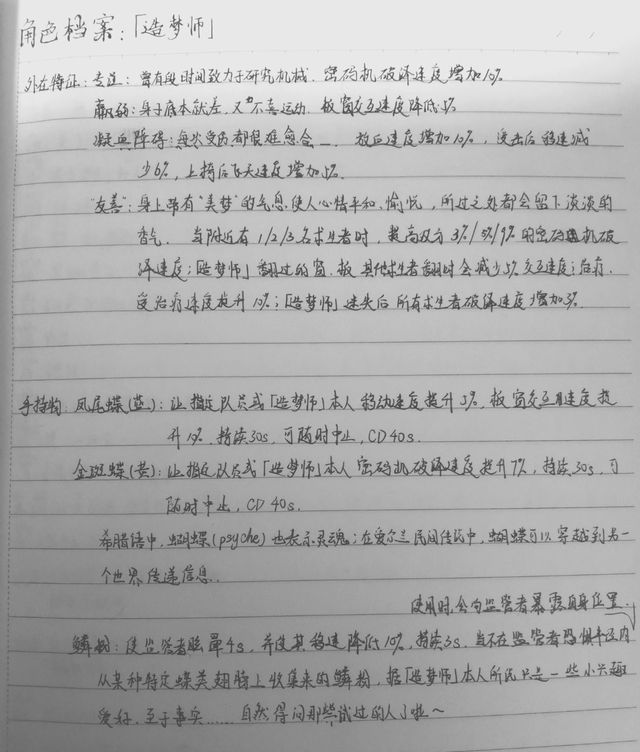 角色档案:「造梦师」
外在特征:专注:曾有段时间致力于研究机械.密码机破译速度增加10%
羸弱:身子底本就差,又不喜运动.板窗交互速度降低5%
凝血障碍:每次受伤都很难愈合一.放血速度增加10%,受击后移速减
少6%,上椅后飞天速度增加5%.
"友善":身上带有"美梦"的气息使人心情平和、愉悦,所过之处都会留下淡淡的
香气.当附近有1/2/3名求生者时,提高双方3%/5%/9%的密码机破
译速度;「造梦师」翻过的窗.板其他求生者翻时会减少5%交互速度;治疗.
受治疗速度提升10%;「造梦师」迷失后所有求生者破译速度增加3%.
手持物:凤尾蝶(蓝):让指定队员或「造梦师」本人移动速度提升5%,板窗交互速度提
升10%.持续30s,可随时中止,CD40s.
金斑蝶(黄):让指定队员或「造梦师」本人密码机破译速度提升7%,持续30s,可
随时中止,CD 40s.
希腊语中,蝴蝶(psyche)也表示灵魂;在爱尔兰民间传说中,蝴蝶可以穿越到另一
个世界传递信息.
使用时,会向监管者暴露自身位置.
鳞粉:使监管者眩晕4s,并使其移速降低10%,持续3s.当不在监管者恐惧半径内
从某种特定蝶类翅膀上收集来的鳞粉,据「造梦师」本人所说只是一些小兴趣
爱好.至于事实……自然得问那些试过的人了啦~